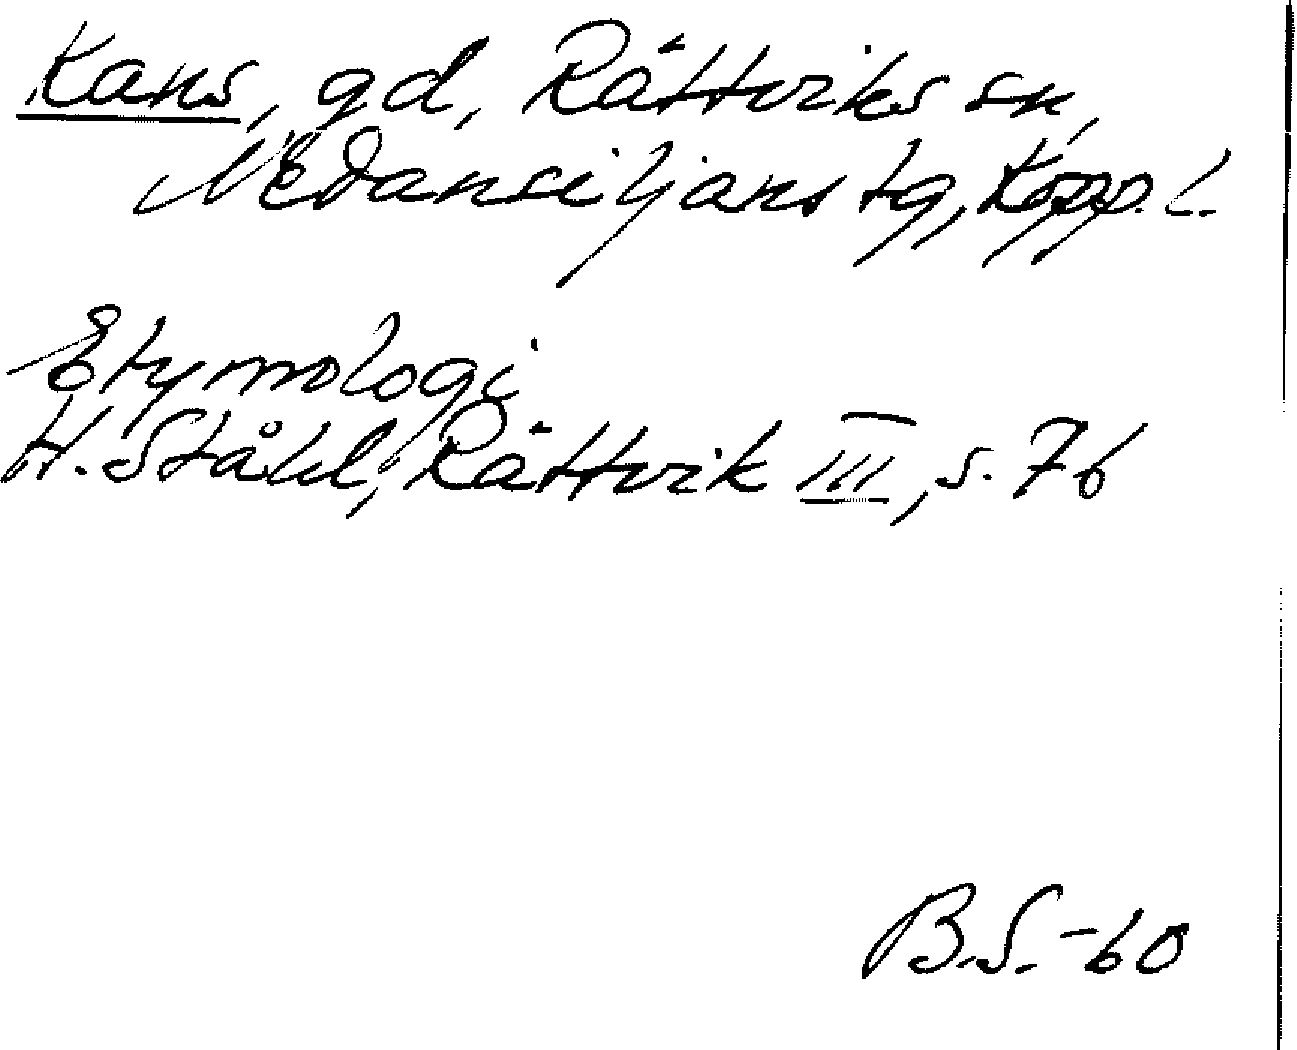 Kans, gd, Rättviks sn,
Nedansiljans tg, Kopp. l.
Etymologi
H. Ståhl, Rättvik III, s. 76
B.S.-60